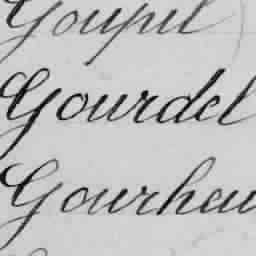 Goupil
Gourdel
Gourheu